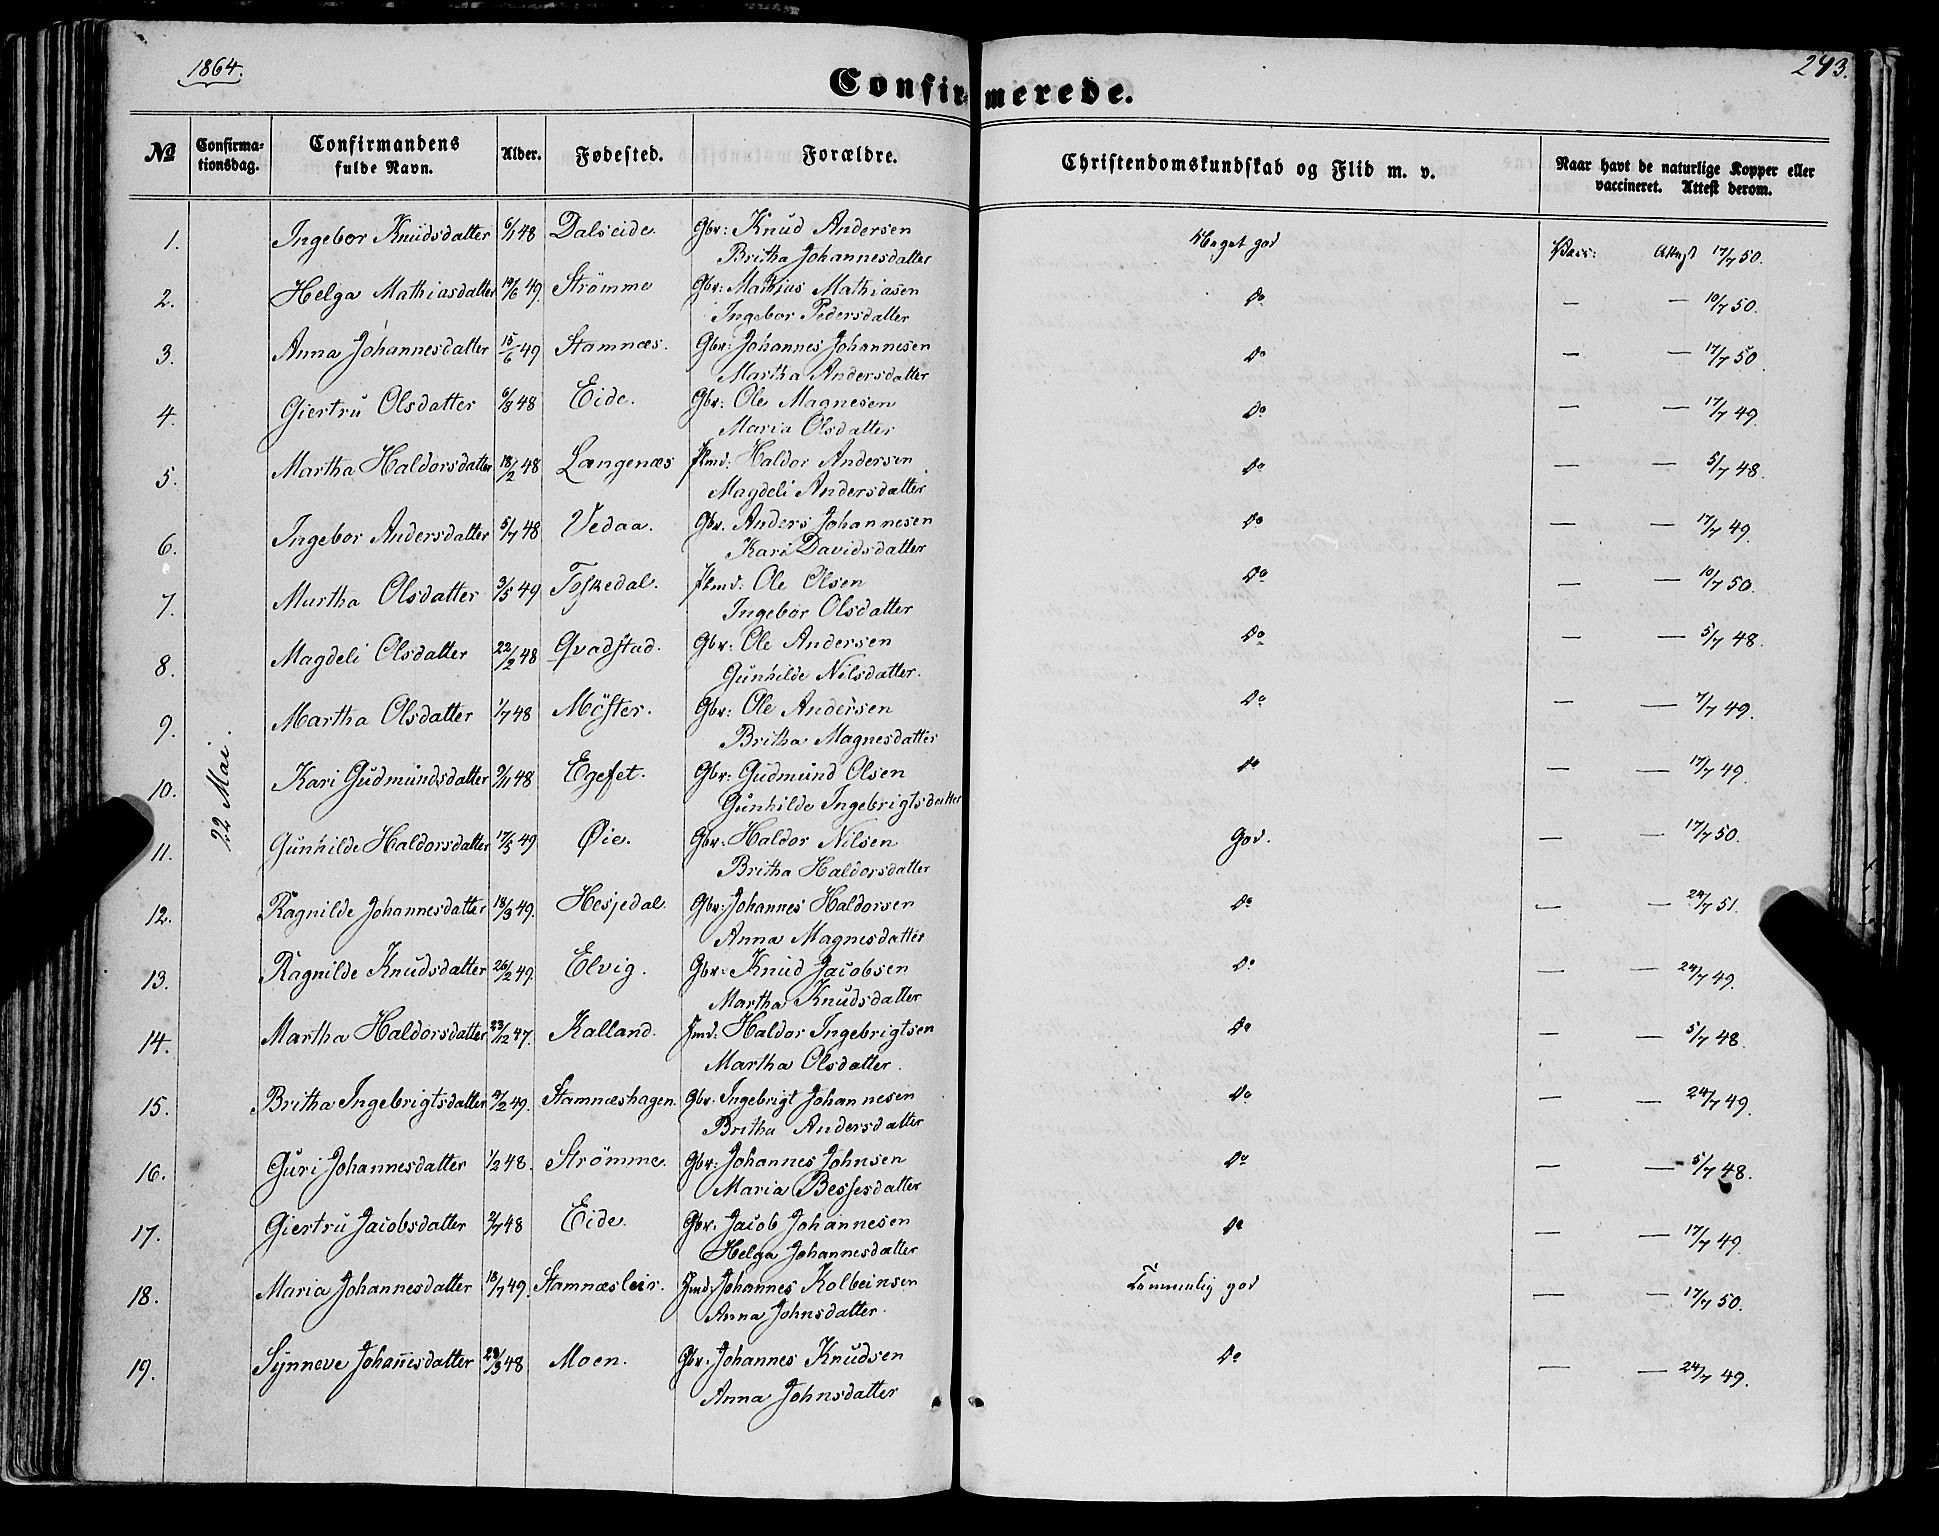 1864.
243.
Confirmerede.
No Confirmationsdag. Confirmandens fulde Navn. Alder. Fødested. Forældre. Christendomskundskab og Flid m. v. Naar havt de naturlige Kopper eller vaccineret. Attest derom.
22 Mai.
1. Ingebor Knudsdatter 6/1 48 Dalseide. Gbr: Knud Andersen Meget god Vacc: Attest 17/7 50.
Britha Johannesdatter
2. Helga Mathiasdatter 14/6 49. Strömme Gbr: Mathias Mathiasen Do — — 10/7 50.
Ingebor Pedersdatter
3. Anna Johannesdatter 15/6 49 Stamnæs. Gbr: Johannes Johannesen Do — — 17/7 50
Martha Andersdatter
4. Giertru Olsdatter 6/8 48 Eide. Gbr: Ole Magnesen Do — — 17/7 49.
Maria Olsdatter
5. Martha Haldorsdatter 18/2 48 Langenæs Haldor Andersen Do — — 5/7 48.
Magdeli Andersdatter
6. Ingebor Andersdatter 5/7 48 Vedaa. Gbr. Anders Johannesen Do — — 17/7 49.
Kari Davidsdatter
7. Martha Olsdatter 3/5 49 Toskedal. Ole Olsen Do — — 10/7 50.
Ingebor Olsdatter
8. Magdeli Olsdatter 22/2 48 Qvadstad. Gbr: Ole Andersen Do — — 5/7 48.
Gunhilde Nilsdatter.
9. Martha Olsdatter 1/7 48 Möster. Gbr: Ole Andersen Do — — 7/7 49.
Britha Magnesdatter
10. Kari Gudmundsdatter 9/11 48 Egeset. Gbr: Gudmund Olsen Do — — 17/7 49.
Gunhilde Ingebrigtsdatter
11. Gunhilde Haldorsdatter 17/5 49 Øie. Gbr: Haldor Nilsen God. — — 17/7 50.
Britha Haldorsdatter
12. Ragnilde Johannesdatter 18/3 49. Hesjedal. Gbr: Johannes Haldorsen Do — — 24/7 51.
Anna Magnesdatter
13. Ragnilde Knudsdatter 26/2 49. Elvig. Gbr: Knud Jacobsen Do — — 24/7 49.
Martha Knudsdatter
14. Martha Haldorsdatter 23/12 47. Kalland. Haldor Ingebrigtsen Do — — 5/7 48.
Martha Olsdatter.
15. Britha Ingebrigtsdatter 4/2 49. Stamnæshagen. Gbr. Ingebrigt Johannesen Do — — 24/7 49.
Britha Andersdatter
16. Guri Johannesdatter 1/2 48. Strömme. Gbr: Johannes Johnsen Do — — 5/7 48.
Maria Bessesdatter
17. Giertru Jacobsdatter 2/7 48 Eide. Gbr. Jacob Johannesen Do — — 17/7 49.
Helga Johannesdatter
18. Maria Johannesdatter 18/7 49. Stamnæsleir. Johannes Kolbeinsen Temmelig god — — 17/7 50.
Anna Johnsdatter.
19. Synneve Johan̄esdatter 28/3 48 Moen. Gbr: Johannes Knudsen Do — — 24/7 49.
Anna Johnsdatter